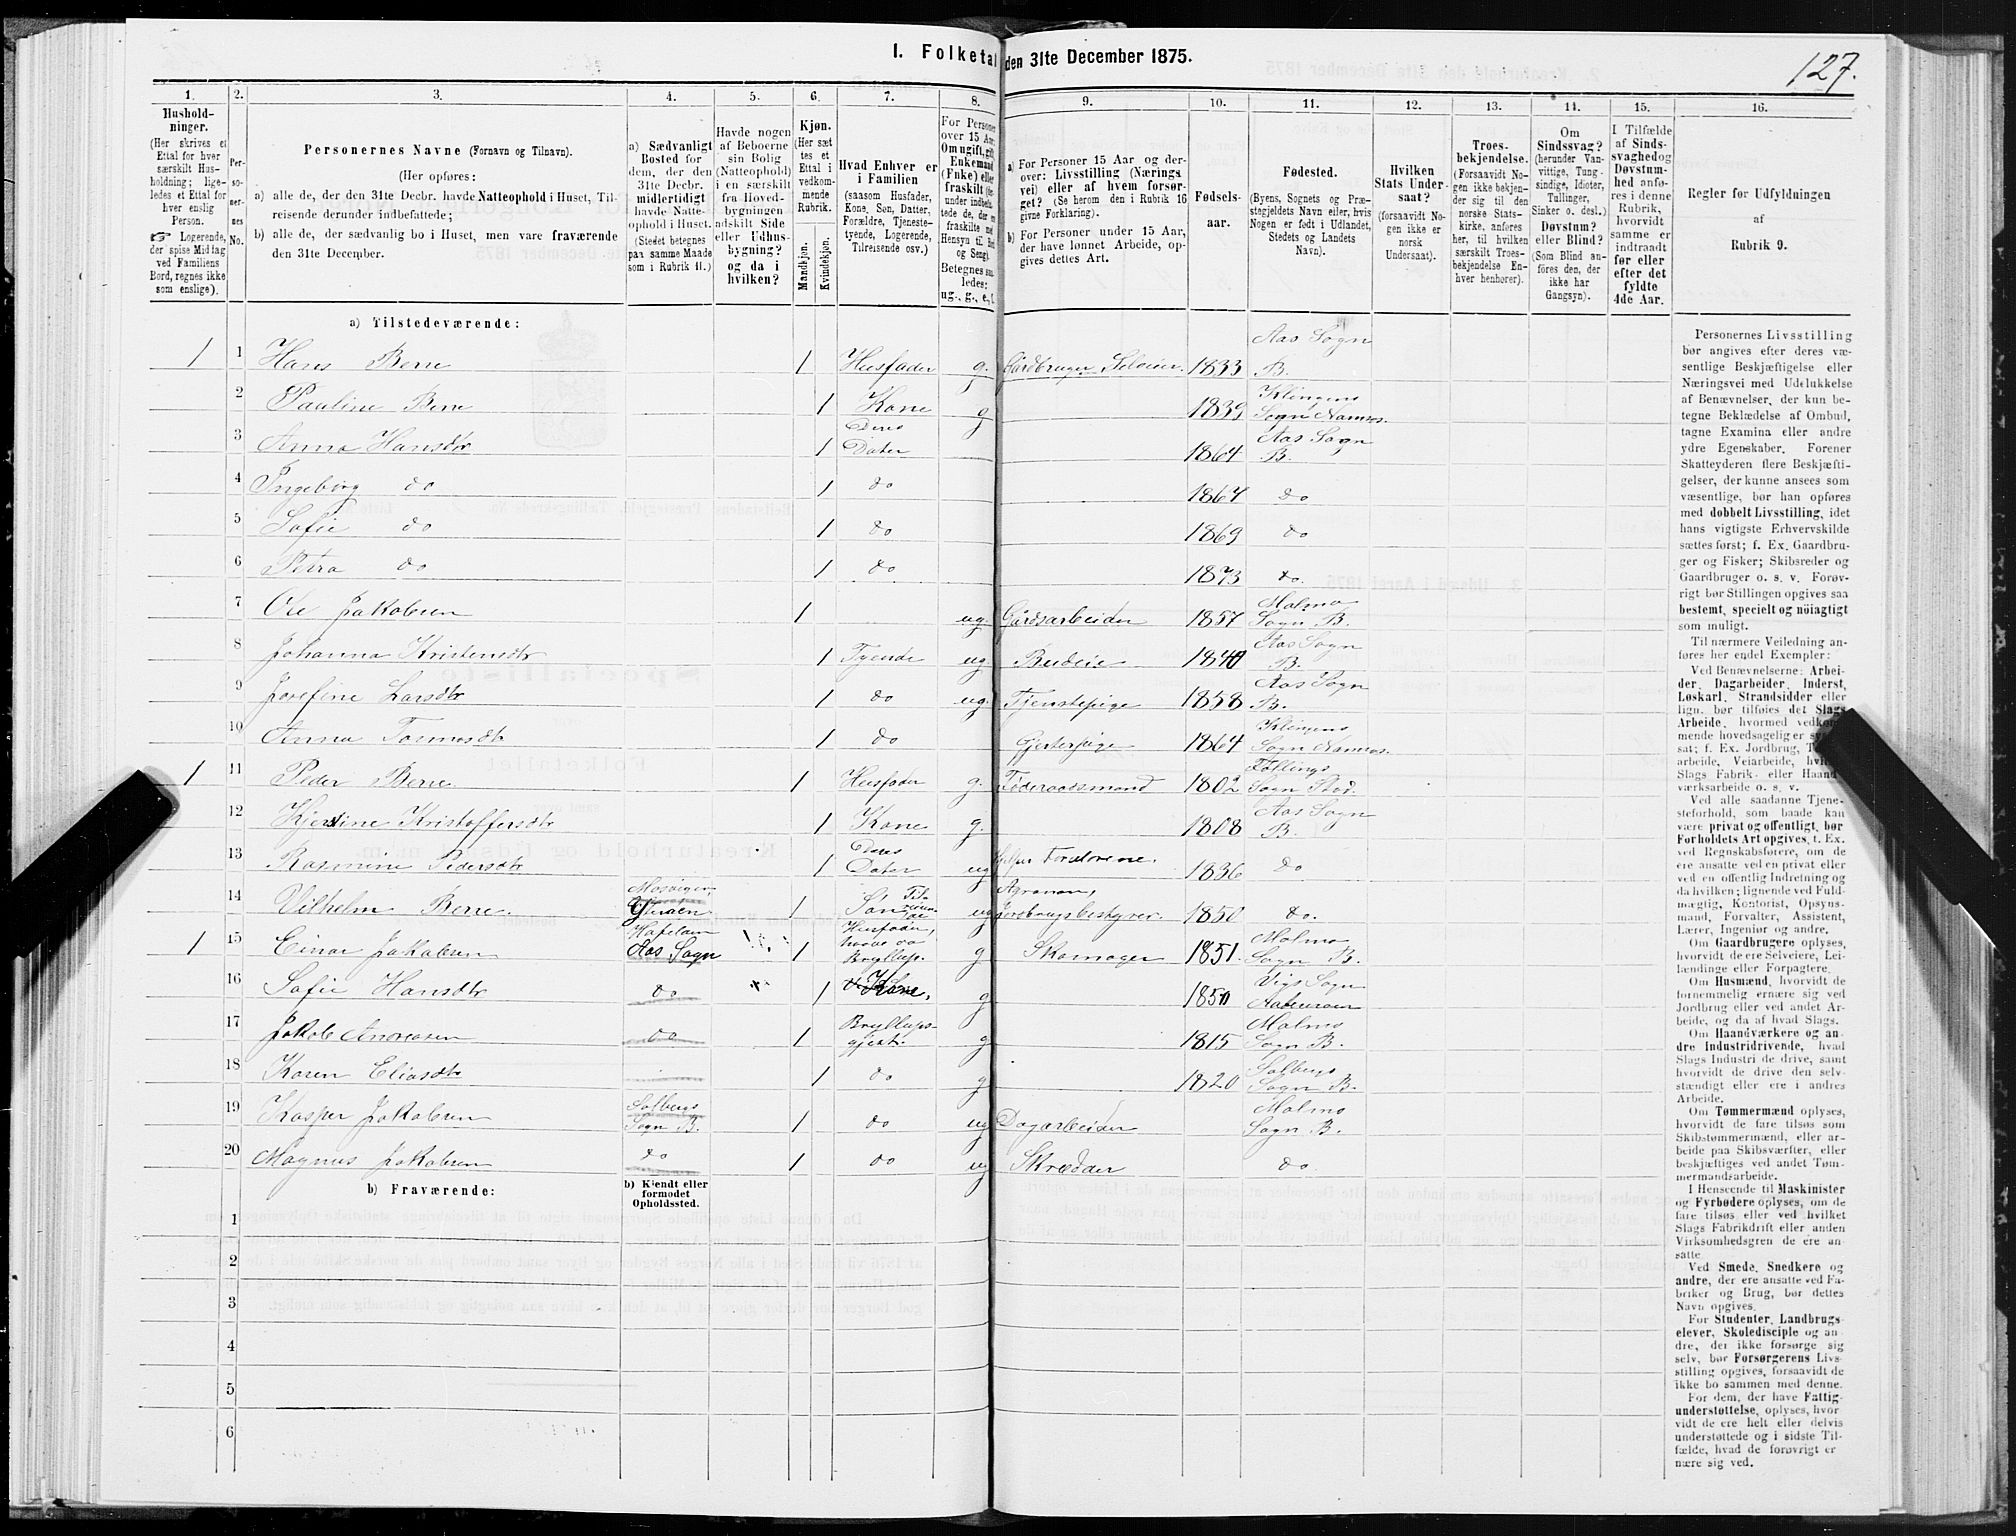 127.
I. Folketal den 31te December 1875.
1. 2. 3. 4. 5. 6. 7. 8. 9. 10. 11. 12. 13. 14. 15. 16.
Hushold-
ninger.
(Her skrives et
Ettal for hver
særskilt Hus-
holdning; lige-
ledes et Ettal for
hver enslig
Person.
☞ Logerende,
der spise Middag
ved Familiens
Bord, regnes ikke
som enslige).
Per-
so-
ner-
nes
No.
Personernes Navne (Fornavn og Tilnavn).
(Her opføres:
a) alle de, der den 31te Decbr. havde Natteophold i Huset, Til-
reisende derunder indbefattede;
b) alle de, der sædvanlig bo i Huset, men vare fraværende
den 31te December.
a) Sædvanligt
Bosted for
dem, der den
31te Decbr.
midlertidigt
havde Natte-
ophold i Huset.
(Stedet betegnes
paa samme Maade
som i Rubrik 11.)
Havde nogen
af Beboerne
sin Bolig
(Natteophold)
i en særskilt
fra Hoved-
bygningen
adskilt Side
eller Udhus-
bygning?
og da i
hvilken?
Kjøn.
(Her sæt-
tes et
Ettal i
vedkom-
mende
Rubrik.
Mandkjøn.
Kvindekjøn.
Hvad Enhver er
i Familien
(saasom Husfader,
Kone, Søn, Datter,
Forældre, Tjeneste-
tyende, Logerende,
Tilreisende osv.)
For Personer
over 15 Aar:
Om ugift, gift,
Enkemand
(Enke) eller
fraskilt
Betegnes saa-
ledes:
ug., g., e., f.
a) For Personer 15 Aar og der-
over: Livsstilling (Nærings
vei) eller af hvem forsør-
get? (Se herom den i Rubrik 16
givne Forklaring).
b) For Personer under 15 Aar,
der have lønnet Arbeide, op-
gives dettes Art.
Fødsels-
aar.
Fødested.
(Byens, Sognets og Præ-
stegjeldets Navn eller, hvis
Nogen er født i Udlandet,
Stedets og Landets
Navn).
Hvilken
Stats Under-
saat?
(forsaavidt No-
gen ikke er
norsk
Undersaat).
Troes-
bekjendelse.
(Forsaavidt No-
gen ikke bekjen-
der sig til den
norske Stats-
kirke, anføres
her, til hvilken
særskilt Troes-
bekjendelse En-
hver henhører).
Om
Sindssvag?
(herunder Van-
vittige, Tung-
sindige, Idioter,
Tullinger,
Sinker o. desl.)
Døvstum?
eller Blind?
(Som Blind an-
føres den, der
ikke har
Gangsyn).
I Tilfælde
af Sinds-
svaghed og
Døvstum-
hed anfø-
res i denne
Rubrik,
hvorvidt
samme er
indtraadt
før eller
efter det
fyldte
4de Aar.
Regler for Udfyldningen
af
Rubrik 9.
a) Tilstedeværende:
1 1 Hans Berre 1 Husfader g. Gårdbruger Seleier. 1833 Aas Sogn B.
2 Pauline Berre 1 Kone g 1839 Klingens Sogn Namsos.
3 Anna Hansdtr 1 Deres Dater 1864 Aas Sogn B.
4 Ingeborg do 1 do 1867 do
5 Sofie do 1 do 1869 do
6 Petra do 1 do 1873 do.
7 Ole Jakobsen 1 ug. Gårdsarbeider 1857 Malmo Sogn B.
8 Johanna Kristensdtr 1 Tyende ug Budeie 1840 Aas Sogn B.
9 Josefine Larsdtr 1 do ug. Tjenstepige 1858 Aas Sogn B.
10 Anna Tomasdtr 1 do Gjeterpige 1864 Klingens Sogn Namsos.
1 11 Peder Berre 1 Husfader g. Føderaadsmand 1802 Følings Sogn Stod.
12 Kjerstine Kristoffersdtr 1 Kone g. 1808 Aas Sogn B.
13 Rasmine Pedersdtr 1 Deres Dater ug Hjelper Forældrene. 1836 do
14 Vilhelm Berre. 1 Søn ug Agronom, Jordbrugsbestyrer. 1850 do.
1 15 Einar Jakobsen Aas Sogn 1 Husfader, Bryllup. g Skomager 1851. Malmo Sogn B.
16 Sofie Hansdtr do 1 Kone. g 1850 Vigs Sogn
17 Jakob Andreasen do 1 Bryllups-gjest. g 1815 Malmo Sogn B.
18 Karen Eliasdtr 1 do g 1820 Solbergs Sogn B.
19 Kasper Jakobsen Solbergs Sogn B. 1 do ug Dagarbeider Malmo Sogn B.
20 Magnus Jakobsen do 1 do ug Skrædder do.
b) Fraværende:
b) Kjendt eller
formodet
Opholdssted.
1
2
3
4
5
6
Personernes Livsstilling
bør angives efter deres væ-
sentlige Beskjæftigelse eller
Næringsvei med Udelukkelse
af Benævnelser, der kun be-
tegne Beklædelse af Ombud,
tagne Examina eller andre
ydre Egenskaber. Forener
Skatteyderen flere Beskjæfti-
gelser, der kunne ansees som
væsentlige, bør han opføres
med dobbelt Livsstilling, idet
hans vigtigste Erhvervskilde
sættes først; f. Ex. Gaardbru-
ger og Fisker; Skibsreder og
Gaardbruger o. s. v. Forøv-
rigt bør Stillingen opgives saa
bestemt, specielt og nöiagtigt
som muligt.
Til nærmere Veiledning an-
føres her endel Exempler:
Ved Benævnelserne: Arbei-
der, Dagarbeider, Inderst,
Løskarl, Strandsidder eller
lign. bør tilføies det Slags
Arbeide, hvormed vedkom-
mende hovedsagelig er
sat; f. Ex. Jordbrug,
arbeide, Veiarbeide,
Slags Fabrik- eller
værksarbeide o. s. v.
Ved alle saadanne Tjene-
steforhold, som baade kan
være privat og offentligt, bør
Forholdets Art opgives, f. Ex.
ved Regnskabsførere, om de
ere ansatte ved en privat eller
ved en offentlig Indretning og
da hvilken; lignende ved Fuld-
mægtig, Kontorist, Opsyns-
mand, Forvalter, Assistent,
Lærer, Ingeniør og andre.
Om Gaardbrugere oplyses,
hvorvidt de ere Selveiere, Lei-
lændinge eller Forpagtere.
Om Husmænd, hvorvidt de
fornemmelig ernære sig ved
Jordbrug eller ved andet Ar-
beide, og da af hvad Slags.
Om Haandværkere og an-
dre Industridrivende, hvad
Slags Industri de drive, samt
hvorvidt de drive den selv-
stændigt eller ere i andres
Arbeide.
Om Tømmermænd oplyses,
hvorvidt de fare tilsøs som
Skibstømmermænd, eller ar-
beide paa Skibsværfter, eller
beskjæftiges ved andet Tøm-
mermandsarbeide.
I Henseende til Maskinister
og Fyrbødere oplyses, om de
fare tilsøs eller ved hvilket
Slags Fabrikdrift eller anden
Virksomhedsgren de ere an-
satte.
Ved Smede, Snedkere og
andre, der ere ansatte ved Fa-
briker og Brug, bør dettes
Navn opgives.
For Studenter, Landbrugs-
elever, Skoledisciple og an-
dre, der ikke forsørge sig
selv, bør Forsørgerens Livs-
stilling opgives, forsaavidt de
ikke bo sammen med denne.
For dem, der have Fattig-
understøttelse, oplyses, hvor-
vidt de ere helt eller delvis
understøttede og i sidste Til-
fælde, hvad de forøvrigt er-
nære sig ved.